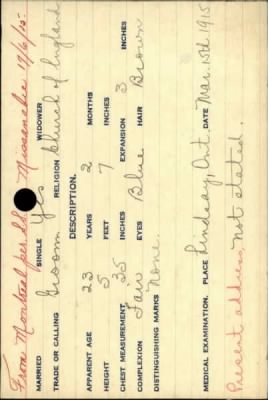 From Montreal per S.S. Missanabie 17/6/15.
MARRIED SINGLE Yes WIDOWER
TRADE OR CALLING Groom RELIGION Church of England
DESCRIPTION.
APPARENT AGE 23 YEARS 2 MONTHS
HEIGHT 5 FEET 7 INCHES
CHEST MEASUREMENT 35 INCHES EXPANSION 3 INCHES
COMPLEXION Fair EYES Blue HAIR Brown
DISTINGUISHING MARKS None.
MEDICAL EXAMINATION. PLACE Lindsay, Ont DATE Mar. 15th 1915
Present address, not stated.